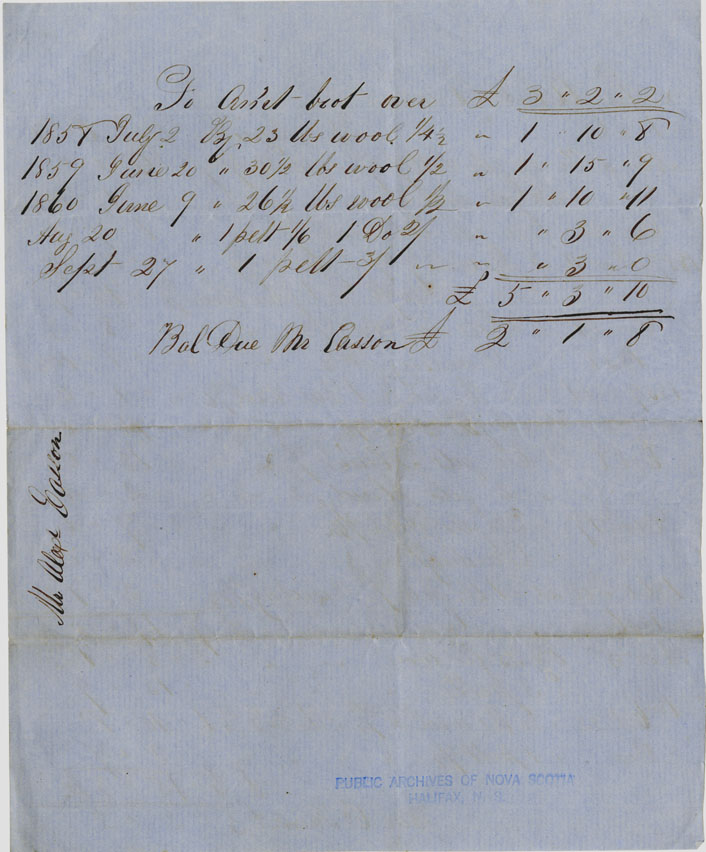 To Am't brot over £ 3 " 2 " 2
1858 July 2 By 23 lbs wool 1/4½ " 1 " 10 " 8
1859 June 20 " 30½ lbs wool 1/2 " 1 " 15 " 9
1860 June 9 " 26½ lbs wool 1/2 " 1 " 10 " 11
Aug 20 " 1 pelt 1/6 1 Do 2/ " " 3 " 6
Sept 27 " 1 pelt 3/ " " " 3 " 0
£ 5 " 3 " 10
Bal Due Mr Easson £ 2 " 1 " 8
Mr Alexr Easson
PUBLIC ARCHIVES OF NOVA SCOTIA
HALIFAX, N. S.